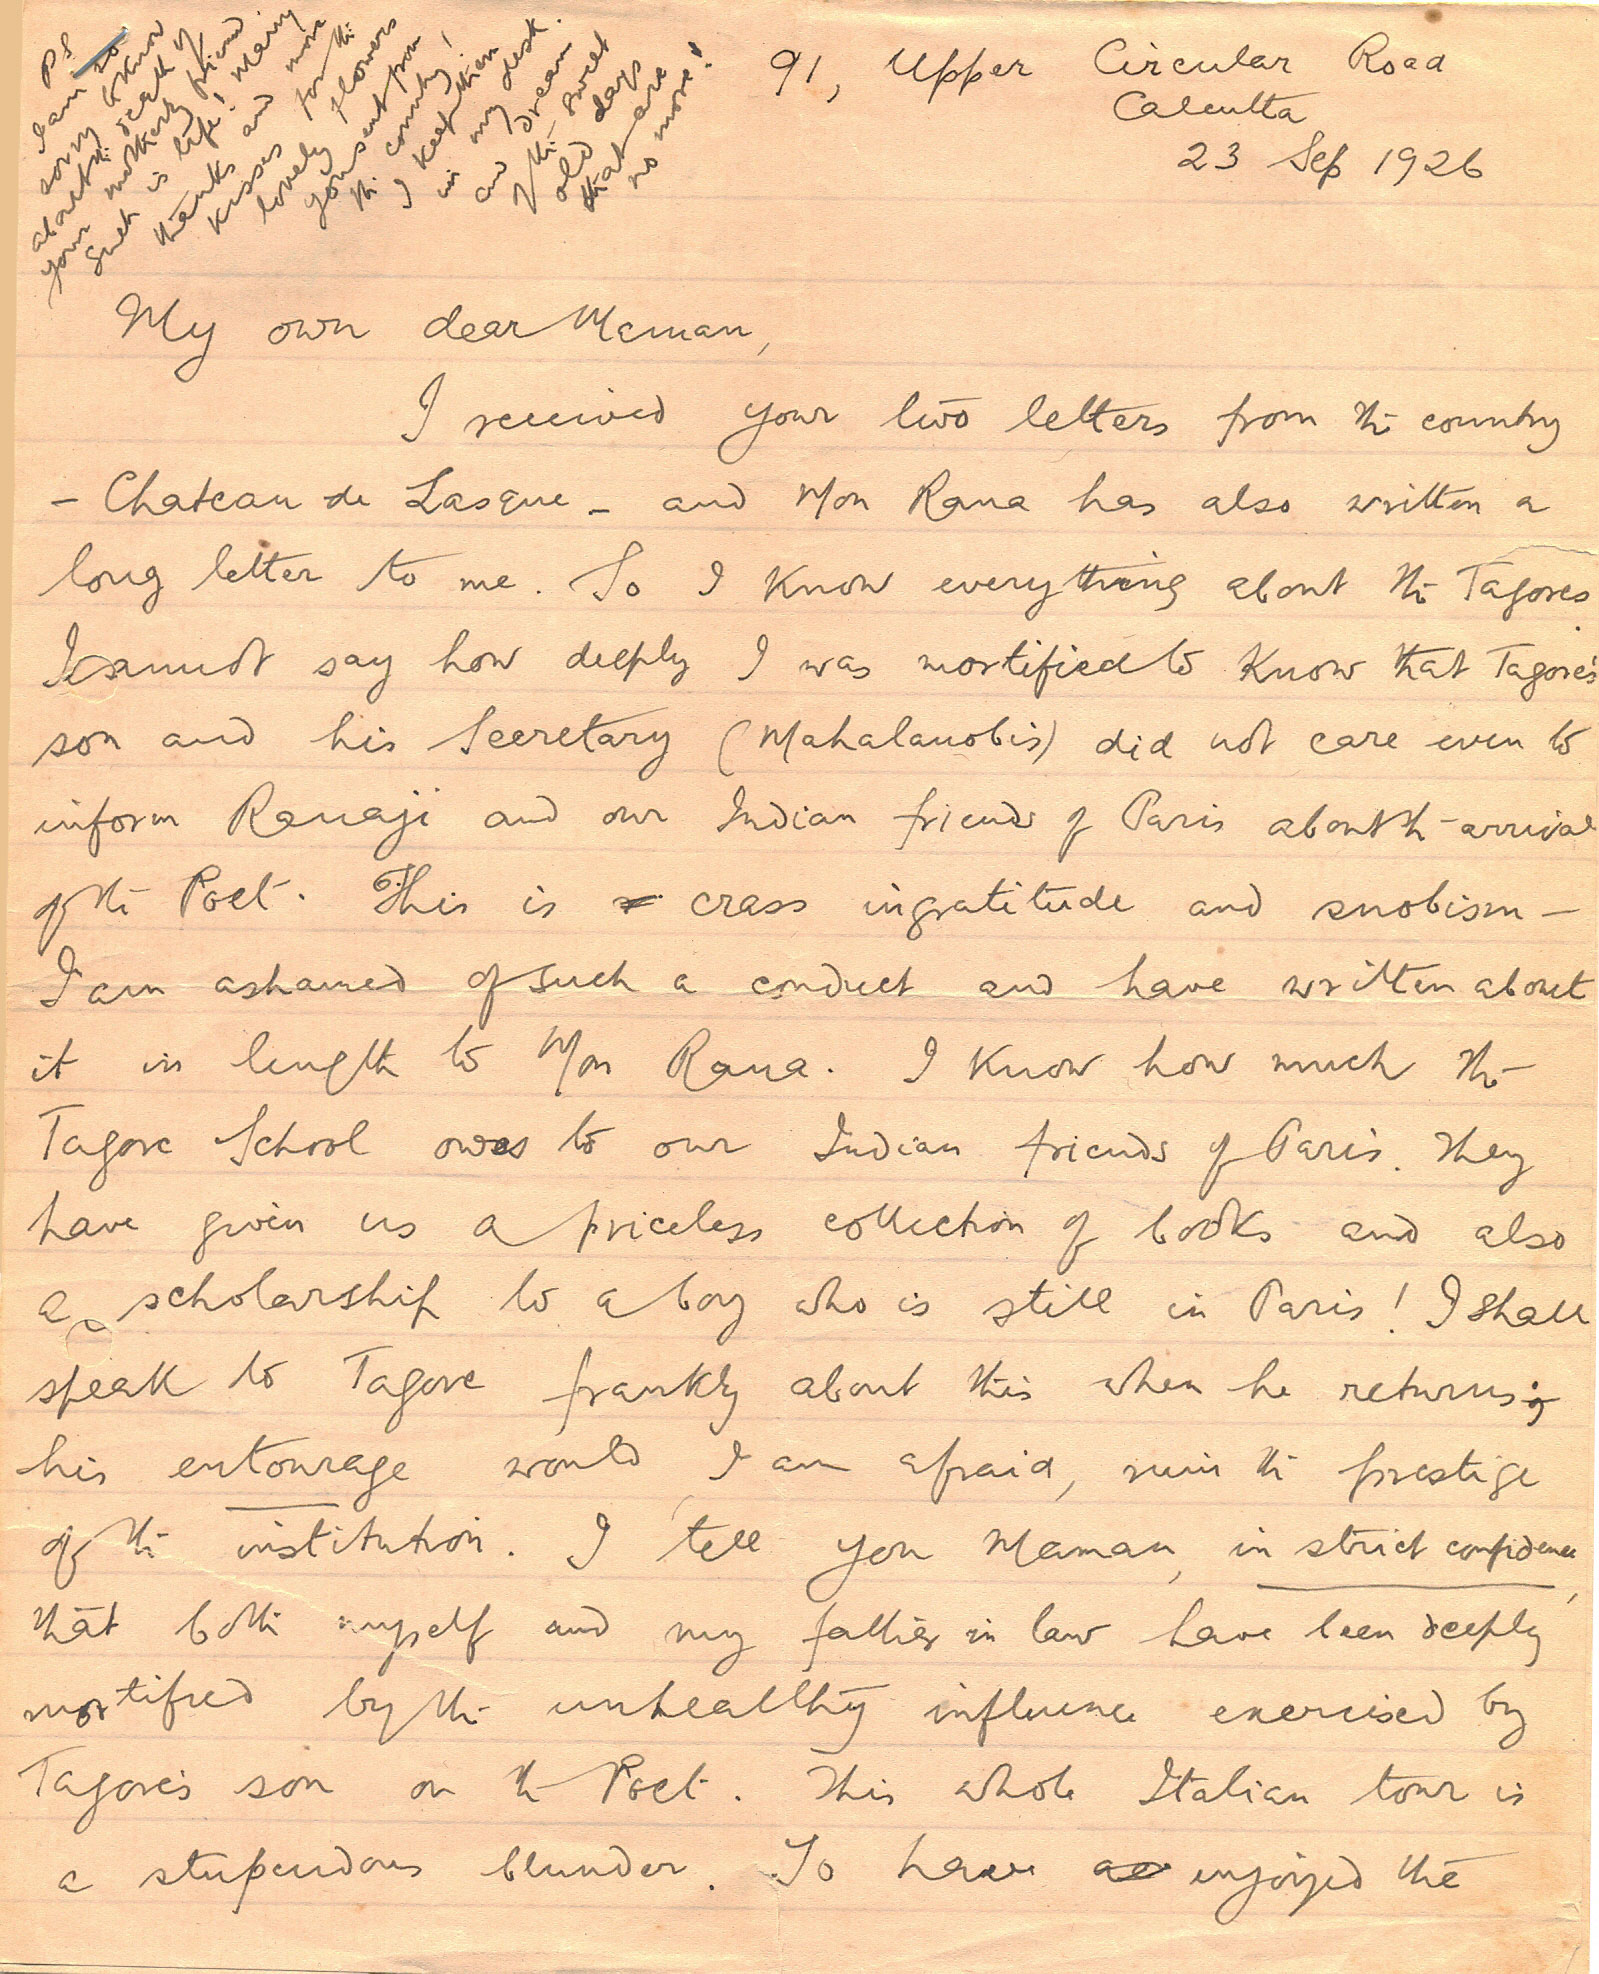 PS
I am so
sorry to know
about the death of
your mother's friend.
Such is life! Many
thanks and more
kisses for the
lovely flowers
you sent from
the country!
I keep them
in my desk.
and dream
of the sweet
old days
that are
no more!
91, Upper Circular Road
Calcutta
23 Sep 1926
My own dear Maman,
I received your two letters from the country
- Chateau de Lasque - and Mon Rana has also written a
long letter to me. So I know everything about the Tagores.
I cannot say how deeply I was mortified to know that Tagore's
son and his Secretary (Mahalanobis) did not care even to
inform Ranaji and our Indian friends of Paris about the arrival
of the Poet. This is crass ingratitude and snobism -
I am ashamed of such a conduct and have written about
it in length to Mon Rana. I know how much the
Tagore School owes to our Indian friends of Paris. They
have given us a priceless collection of books and also
a scholarship to a boy who is still in Paris! I shall
speak to Tagore frankly about this when he returns;
his entourage would I am afraid, ruin the prestige
of the institution. I tell you Maman, in strict confidence,
that both myself and my father in law have been deeply
mortified by the unhealthy influence exercised by
Tagore's son on the Poet. This whole Italian tour is
a stupendous blunder. To have enjoyed the